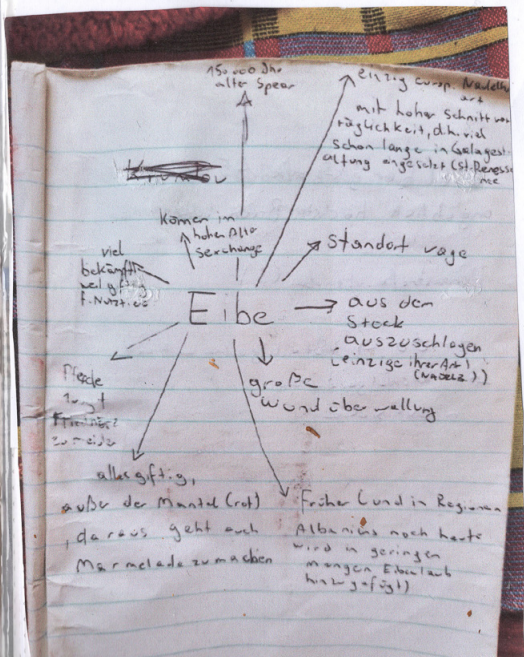 150000 Jhr
alter Speer
einzig europ. Nadelh
art
mit hoher Schnittver
träglichkeit, d.h. viel
schon lange in Galagest
altung angesetzt (st. Renaiss
nce
können im
hohen Alter
Sexchange
Standort vage
viel
bekämpft
weil giftig
f. Nutztiere
Eibe
aus dem
Stock
auszuschlagen
(einzige ihrer Art)
(NADELZ))
große
Wundüberwallung
Pferde
zu meiden
alles giftig,
außer der Mantel (rot)
, daraus geht auch
Marmelade zu machen
Früher (und in Regionen
Albaniens noch heute
wird in geringen
mengen Eibenlaub
hinzugefügt)